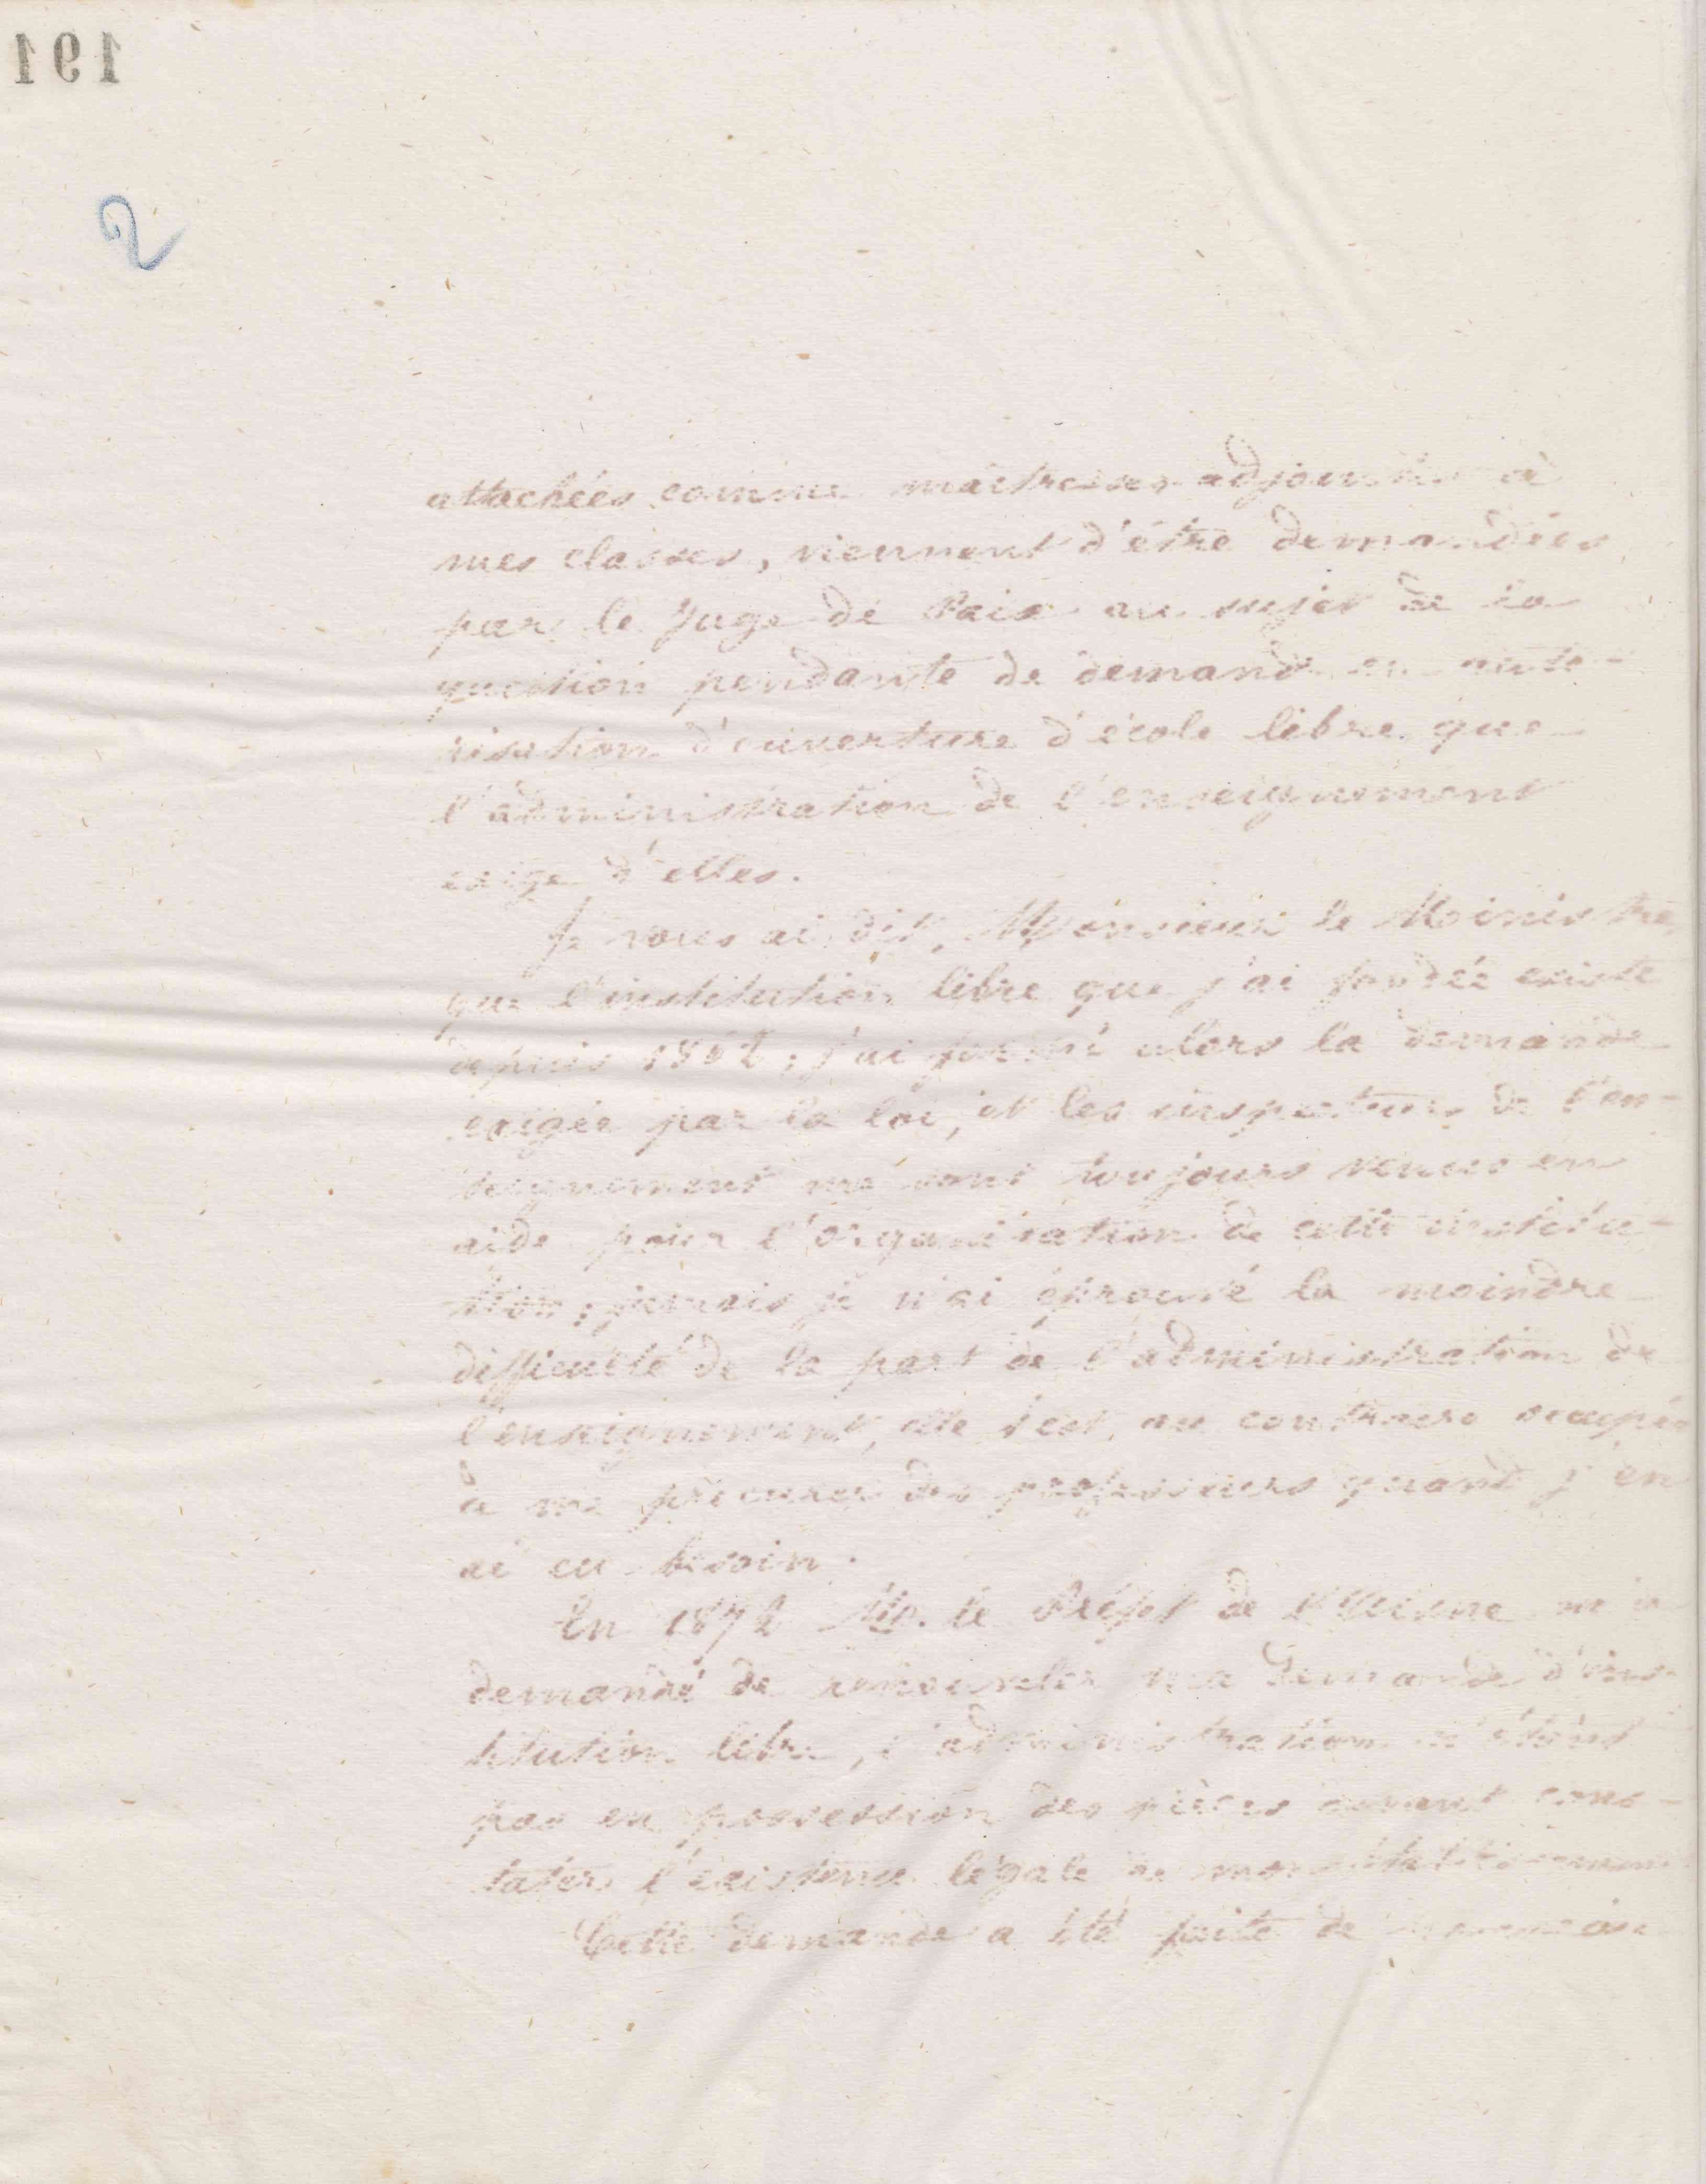 191
2
attachées comme maîtresses adjointes à
mes classes, viennent d'être demandées
par le Juge de Paix au sujet de la
question pendante de demande en auto-
risation d'ouverture d'école libre que
l'administration de l'enseignement
exige d'elles.
Je vous ai dit, Monsieur le Ministre,
que l'institution libre que j'ai fondée existe
depuis 1862, j'ai formé alors la demande
exigée par la loi, et les inspecteurs de l'en-
seignement me sont toujours venus en
aide pour l'organisation de cette institu-
tion; jamais je n'ai éprouvé la moindre
difficulté de la part de l'administration de
l'enseignement, elle s'est, au contraire occupée
à me procurer des professeurs quand j'en
ai eu besoin.
En 1872 M. le Préfet de l'Aisne m'a
demandé de renouveler ma demande d'ins-
titution libre, l'administration n'étant
pas en possession des pièces devant cons-
tater l'existence légale de mon établissement.
Cette demande a été faite de